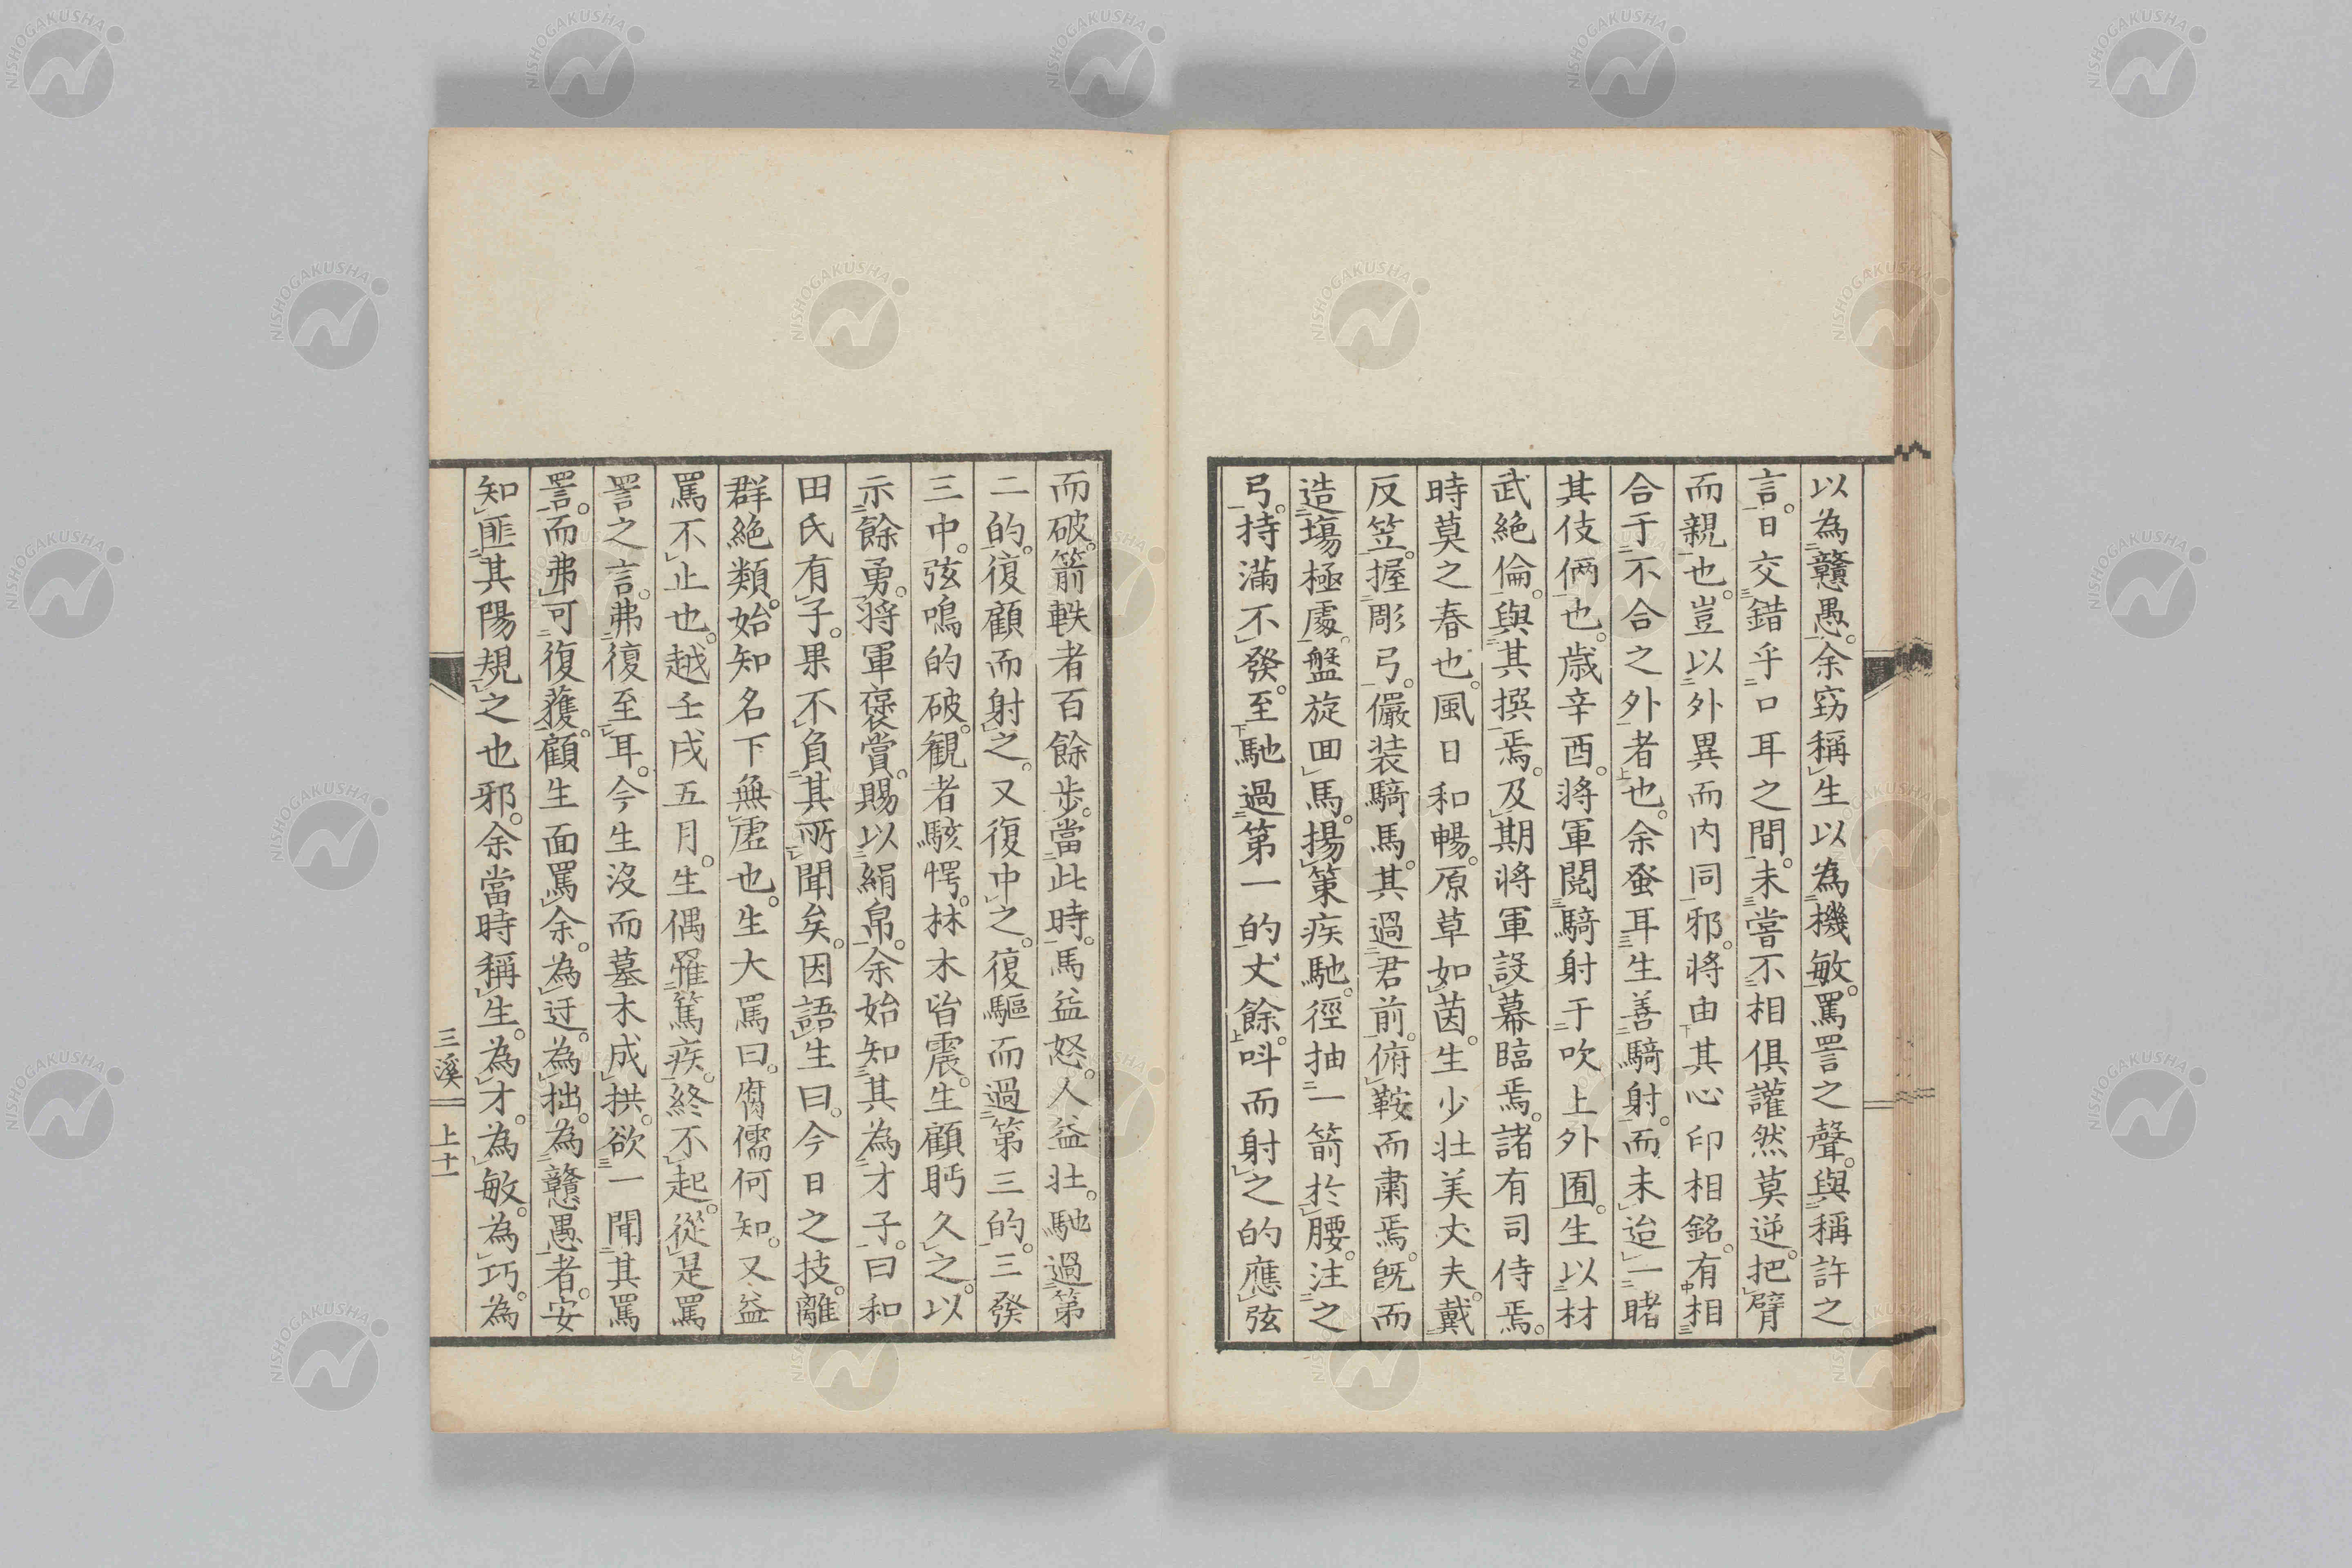 以為戇愚。余窈稱生以為機敏。罵詈之聲。與稱許之
言。日交錯乎口耳之間。未嘗不相俱讙然莫逆。把臂
而親也。豈以外異而内同邪。將由其心印相銘。有相
合于不合之外者也。余蚤耳生善騎射。而未迨一睹
其伎倆也。歳辛酉。將軍閲騎射于吹上外囿。生以材
武絶倫。與其撰焉。及期將軍設幕臨焉。諸有司侍焉。
時莫之春也。風日和暢。原草如茵。生少壮美丈夫。戴
反笠。握彫弓。儼装騎馬。其過君前。俯鞍而肅焉。既而
造塲極處。盤旋囬馬。揚策疾馳。徑抽一箭於腰。注之
弓。持滿不發。至馳過第一的丈餘。呌而射之的應弦
而破。箭軼者百餘歩。當此時。馬益怒。人益壮。馳過第
二的。復顧而射之。又復中之。復驅而過第三的。三發
三中。弦鳴的破。観者駭愕。林木皆震。生顧眄久之。以
示餘勇。將軍褒賞。賜以絹帛。余始知其為才子。曰和
田氏有子。果不負其所聞矣。因語生曰。今日之技。離
群絶類。始知名下無虚也。生大罵曰。腐儒何知。又益
罵不止也。越壬戌五月。生偶罹篤疾。終不起。從是罵
詈之言。弗復至耳。今生沒而墓木成拱。欲一聞其罵
詈。而弗可復獲。顧生面罵余。為迂。為拙。為戇愚者。安
知匪其陽規之也邪。余當時稱生。為才。為敏。為巧。為
三溪 上十一
NISHOGAKUSHA